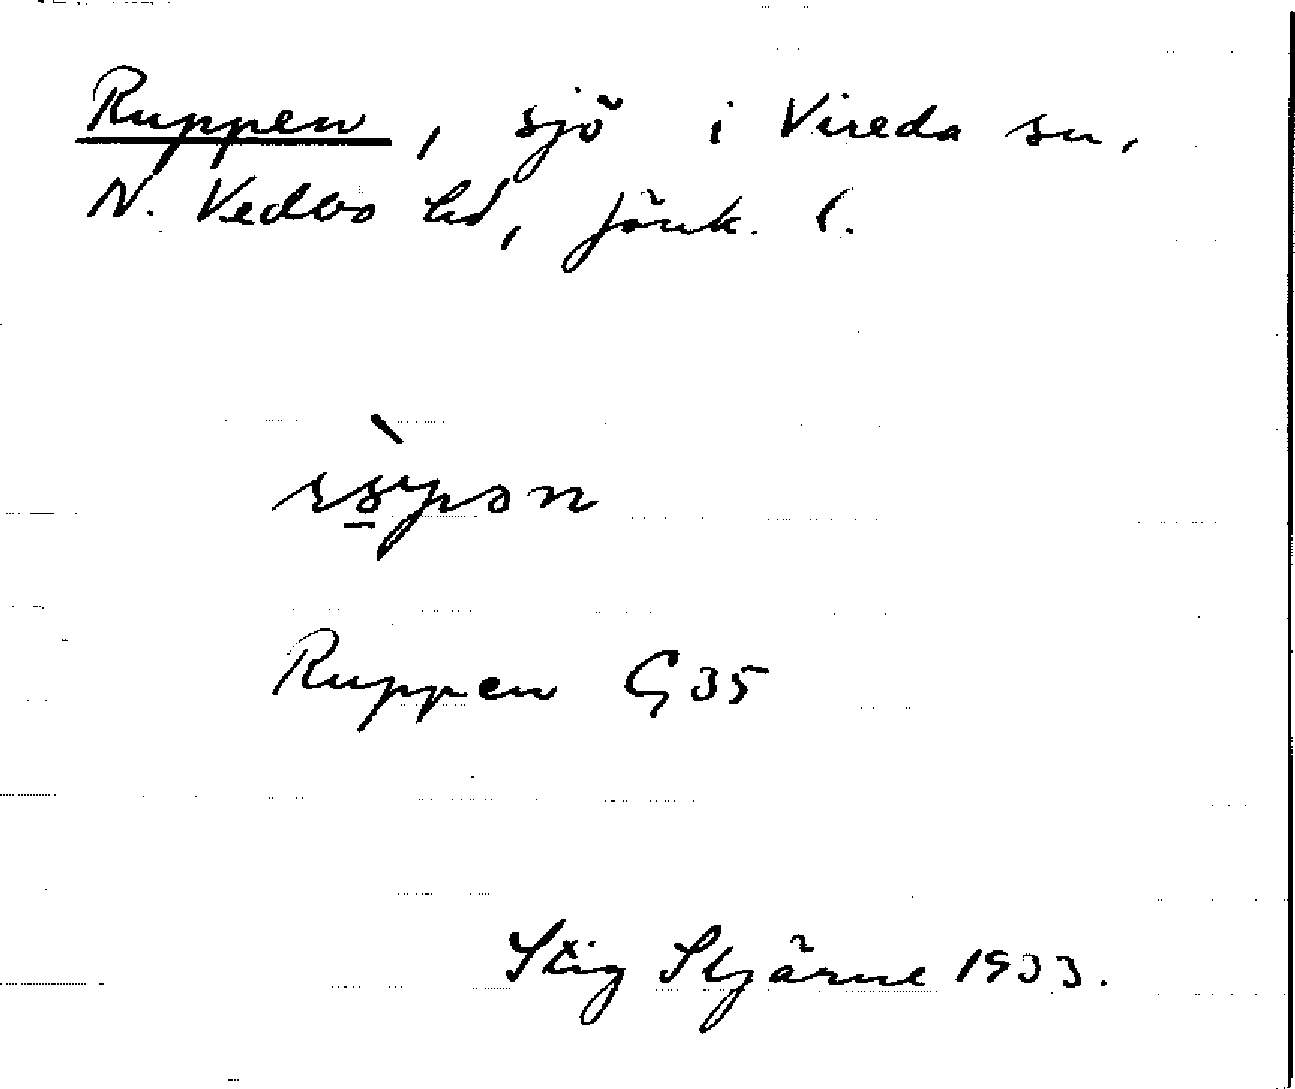 Ruppen, sjö i Vireda sn,
N. Vedbo hd, Jönk. l.
Ruppen G35
Stig Stjärne 1933.